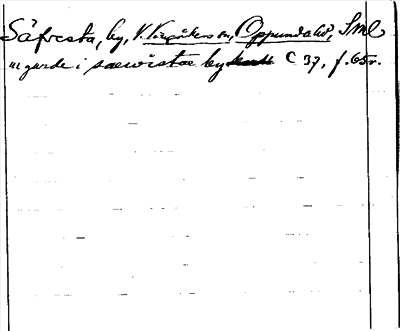 Säfvesta, by, V. Vingåkers sn, Oppunda hd, Sml
iij garde i saewistae by C 37, f. 65r.